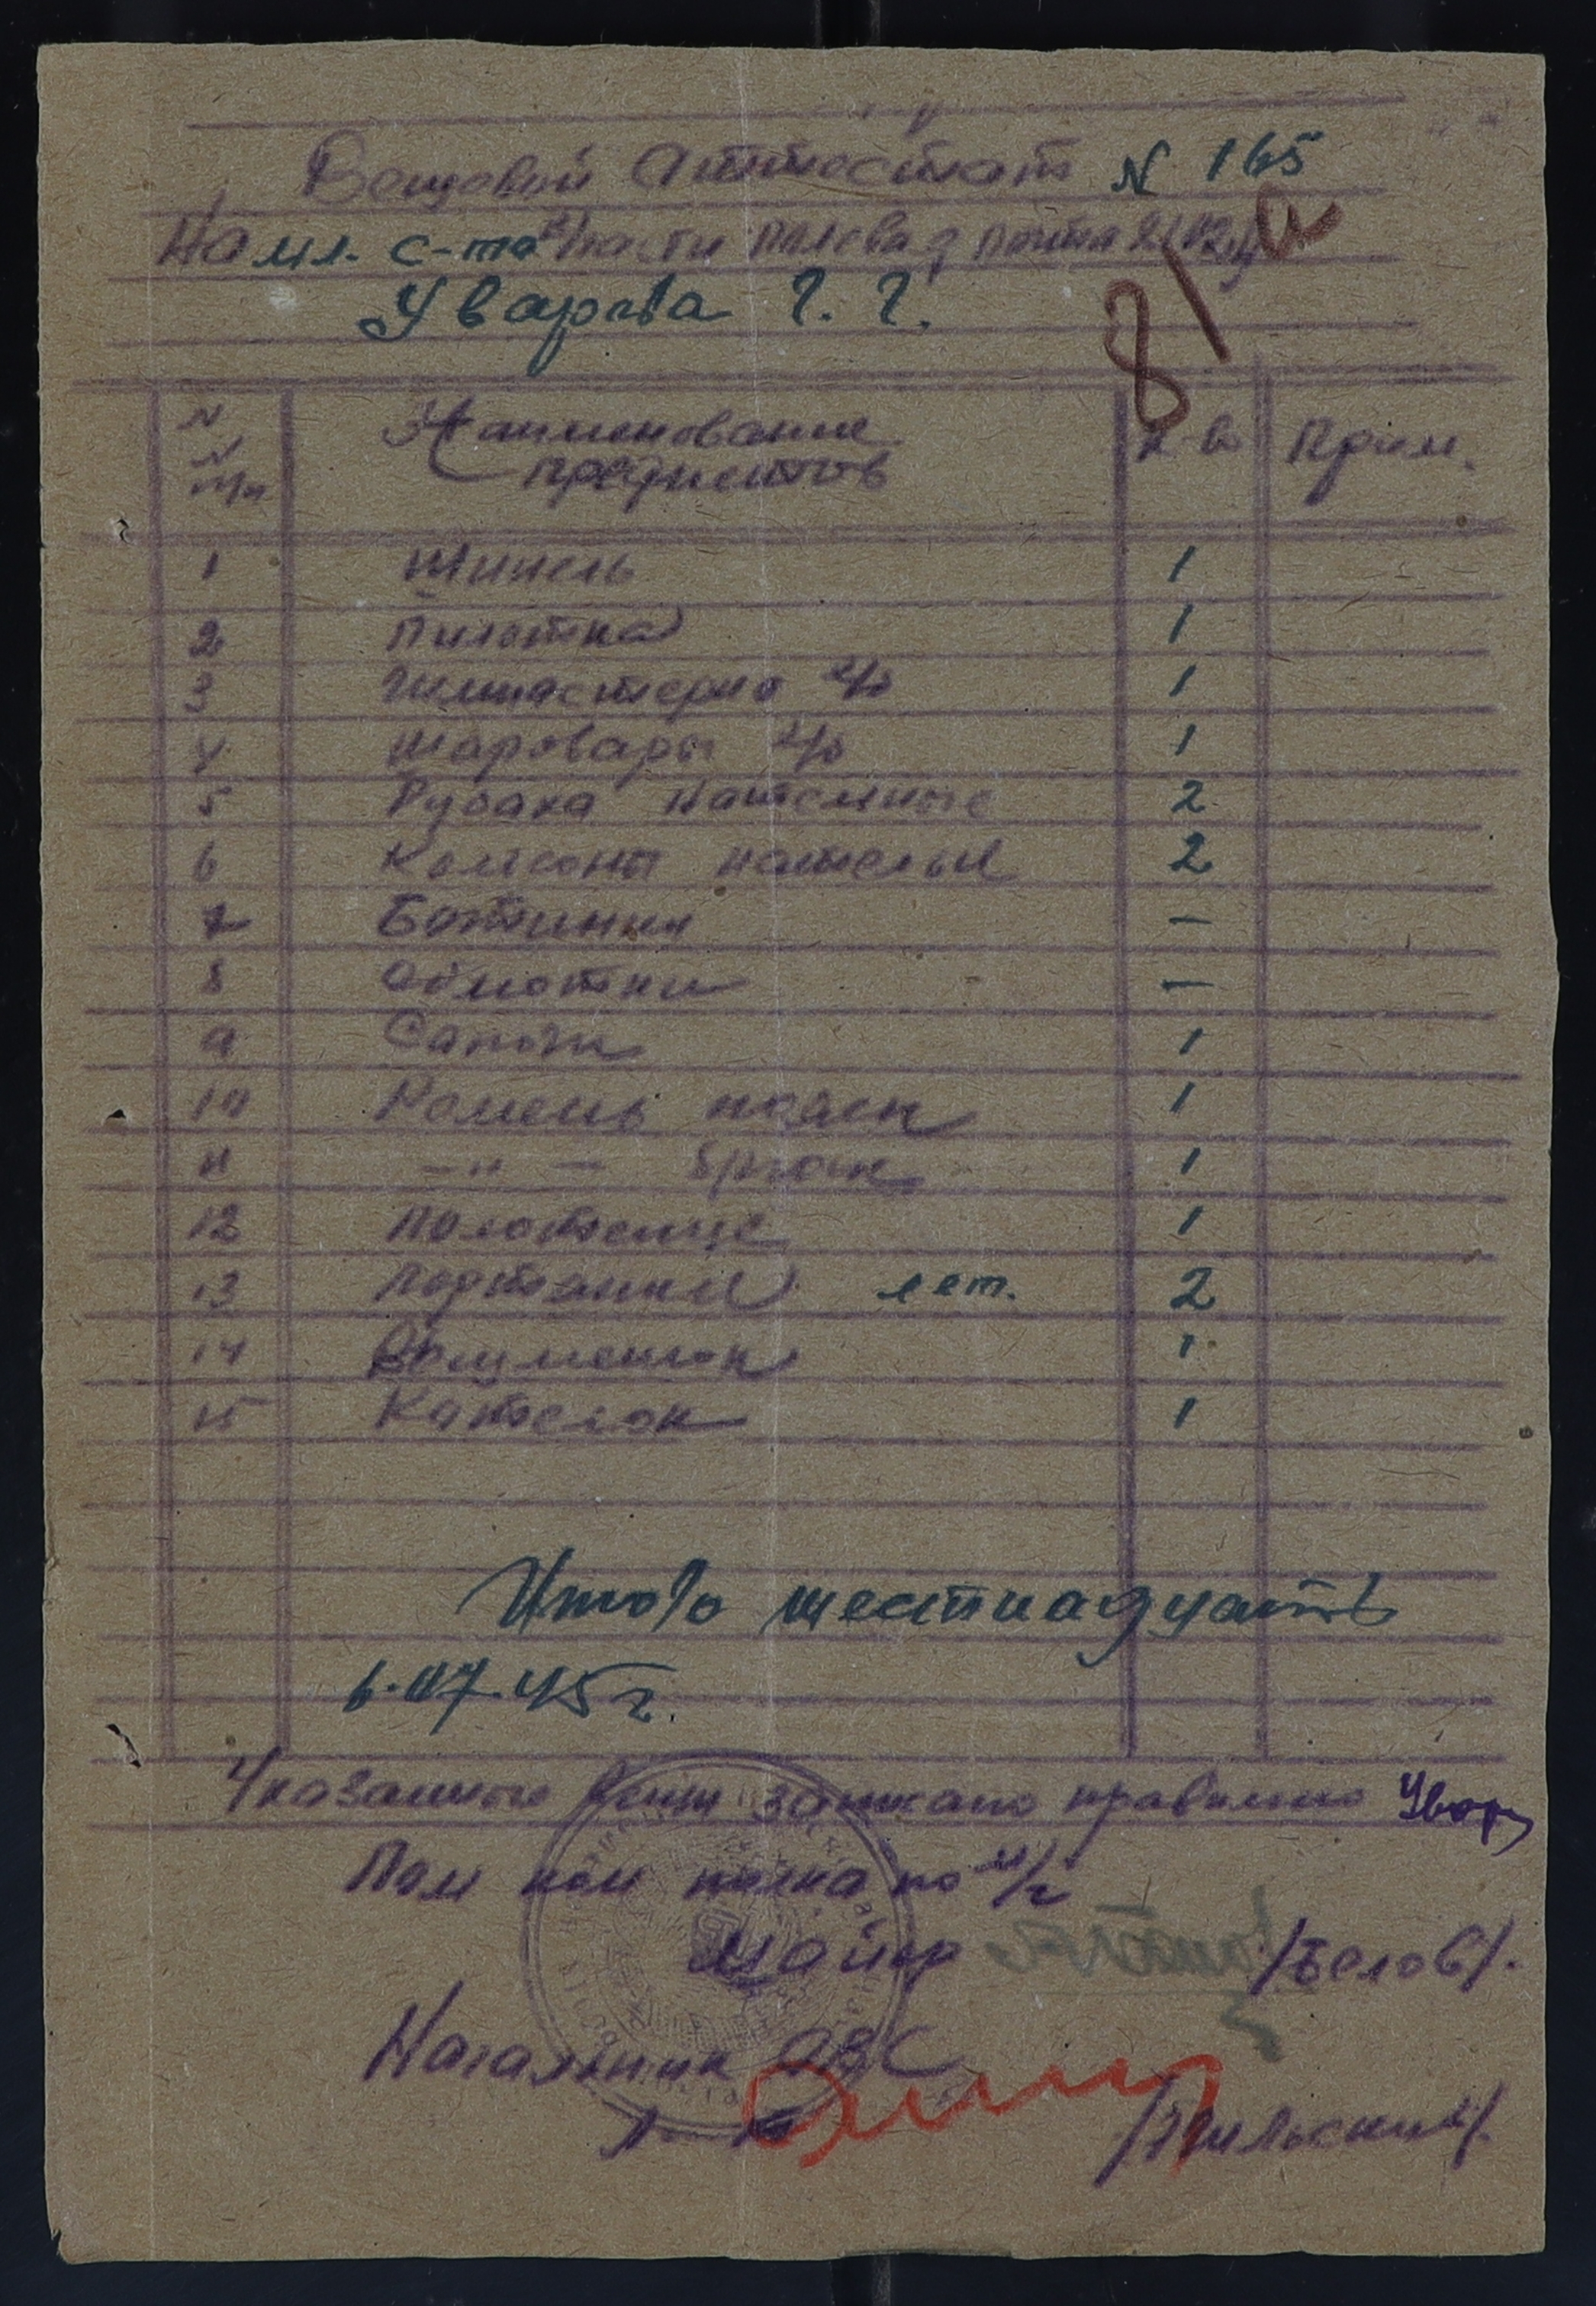 Вещовой Аттостат N 165
На мл. с-та в/части Полевая почта
Уварова Г. Г.
81 а
N N п/п Наименование предметов к-во Прим.
1 Шинель 1
2 Пилотка 1
3 Гимнастерка х/б 1
4 Шаровары х/б 1
5 Рубаха нательные 2
6 Кальсоны нательн 2
7 Ботинки —
8 Обмотки —
9 Сапоги 1
10 Ремень поясн 1
11 —"— брючн 1
12 Полотенце 1
13 Портянки лет. 2
14 Вещмешок 1
15 Кателок 1
Итого шестнадцать
6.07.45 г.
Указанные вещи записано правильно Увар
Пом ком полка по х/ч
Майор /Белов/.
Начальник ОВС
л-т